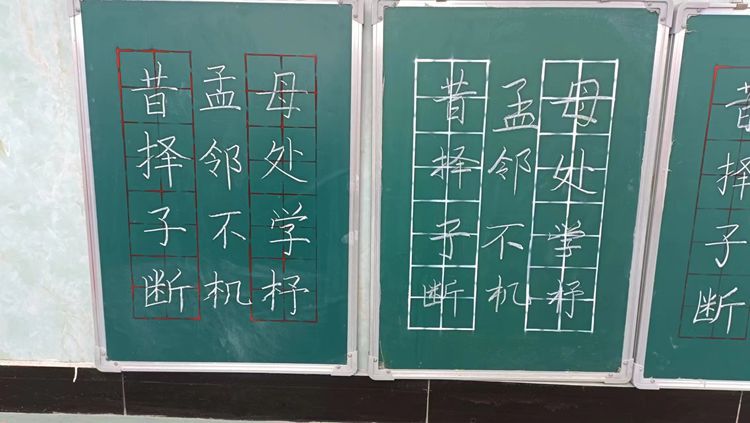 昔孟母
择邻处
子不学
断机杼
昔孟母
择邻处
子不学
断机杼
昔
择
子
断